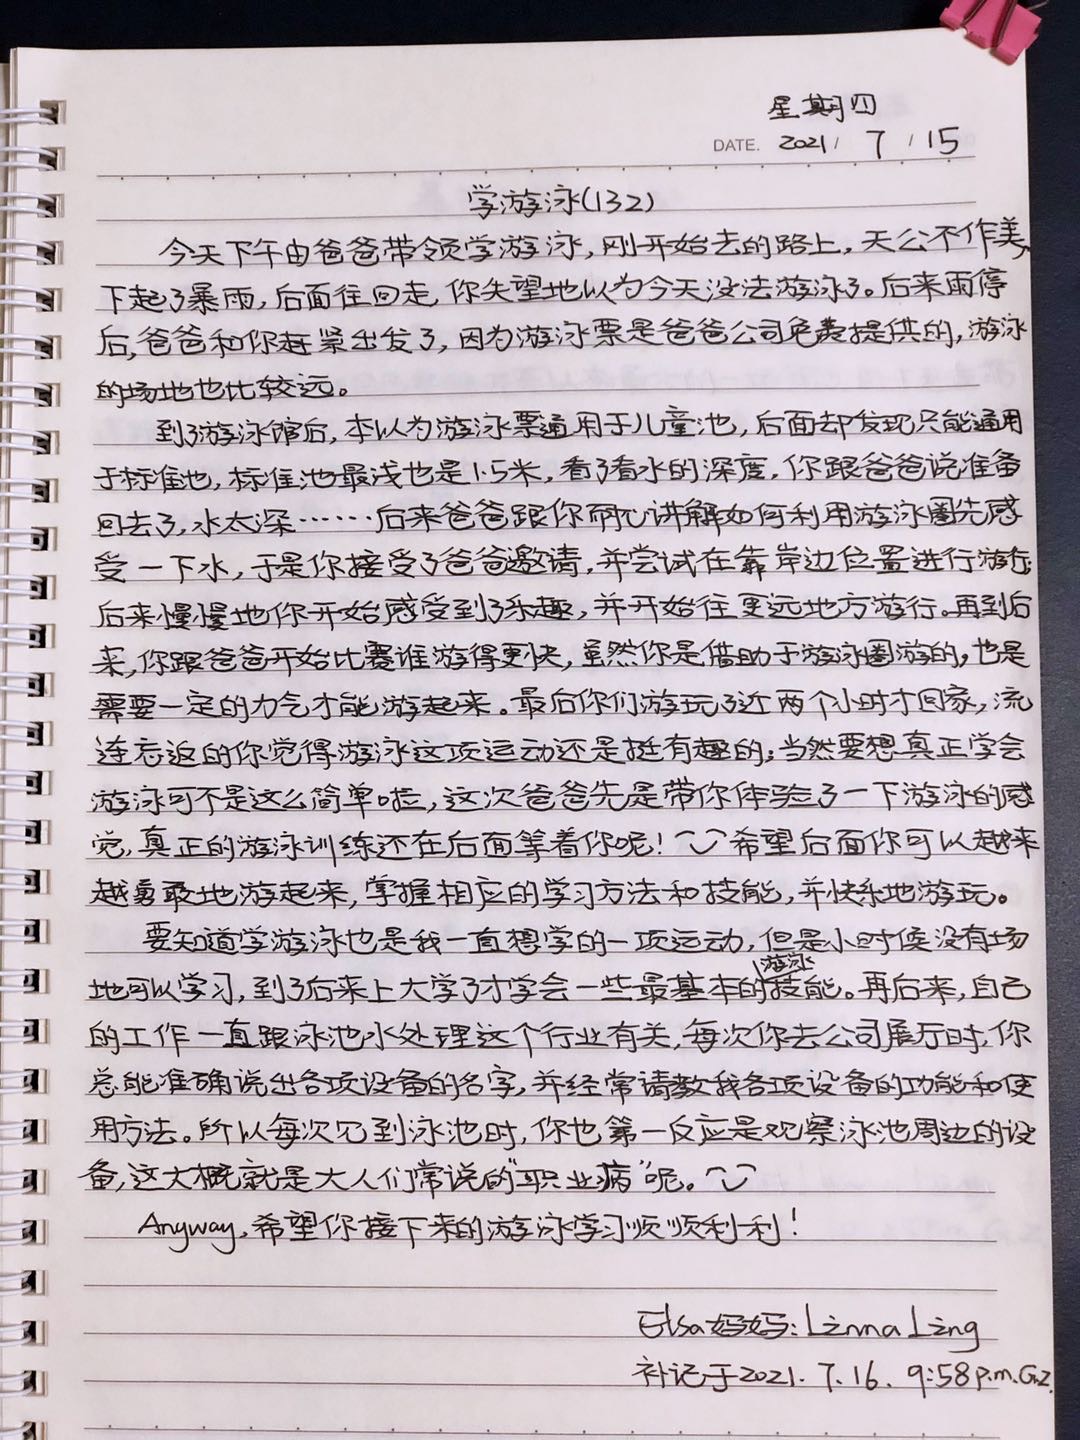 星期四
DATE. 2021 / 7 / 15
学游泳(132)
今天下午由爸爸带领学游泳,刚开始去的路上,天公不作美,
下起了暴雨,后面往回走,你失望地以为今天没法游泳了。后来雨停
后,爸爸和你赶紧出发了,因为游泳票是爸爸公司免费提供的,游泳
的场地也比较远。
到了游泳馆后,本以为游泳票通用于儿童池,后面却发现只能通用
于标准池,标准池最浅也是1.5米,看了看水的深度,你跟爸爸说准备
回去了,水太深……后来爸爸跟你耐心讲解如何利用游泳圈先感
受一下水,于是你接受了爸爸邀请,并尝试在靠岸边位置进行游行;
后来慢慢地你开始感受到了乐趣,并开始往更远地方游行。再到后
来,你跟爸爸开始比赛谁游得更快,虽然你是借助于游泳圈游的,也是
需要一定的力气才能游起来。最后你们游玩了近两个小时才回家,流
连忘返的你觉得游泳这项运动还是挺有趣的;当然要想真正学会
游泳可不是这么简单啦,这次爸爸先是带你体验了一下游泳的感
觉,真正的游泳训练还在后面等着你呢!希望后面你可以越来
越勇敢地游起来,掌握相应的学习方法和技能,并快乐地游玩。
要知道学游泳也是我一直想学的一项运动,但是小时候没有场
地可以学习,到了后来上大学了才学会一些最基本的游泳技能。再后来,自己
的工作一直跟泳池水处理这个行业有关,每次你去公司展厅时,你
总能准确说出各项设备的名字,并经常请教我各项设备的功能和使
用方法。所以每次见到泳池时,你也第一反应是观察泳池周边的设
备,这大概就是大人们常说的"职业病"呢。
Anyway,希望你接下来的游泳学习顺顺利利!
Elsa妈妈:Linna Ling
补记于2021.7.16. 9:58p.m.GZ.